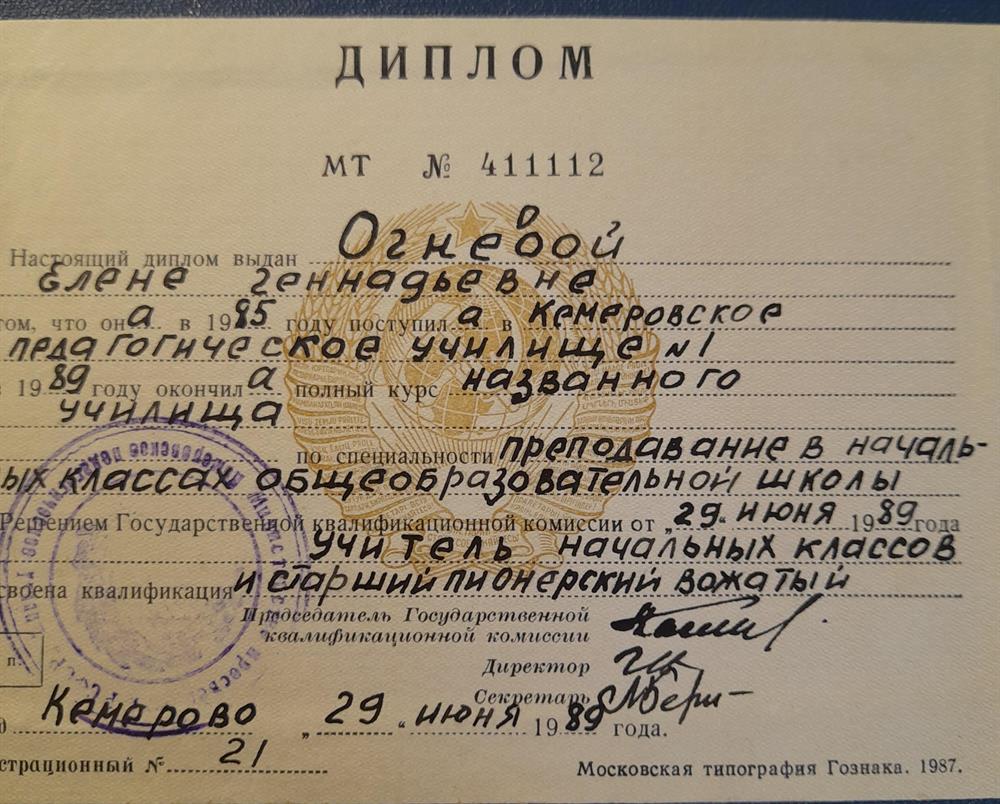 ДИПЛОМ
МТ № 411112
Настоящий диплом выдан Огневой
Елене Геннадьевне
том, что она в 1985 году поступила в Кемеровское
педагогическое училище №1
в 1989 году окончила полный курс названного
училища
по специальности преподавание в началь-
ых классах общеобразовательной школы
Решением Государственной квалификационной комиссии от „29“ июня 1989 года
учитель начальных классов
своена квалификация и старший пионерский вожатый
Председатель Государственной
квалификационной комиссии
Директор
Секретарь
Кемерово „29“ июня 1989 года.
страционный № 21
Московская типография Гознака. 1987.